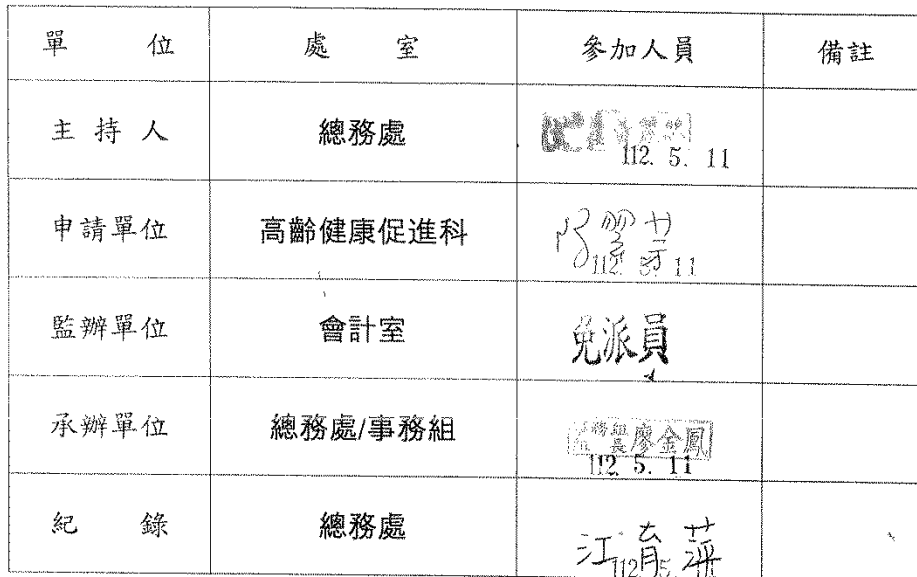 單 位 處 室 參加人員 備註
主 持 人 總務處
112. 5. 11
申請單位 高齡健康促進科
112. 5. 11
監辦單位 會計室 免派員
承辦單位 總務處/事務組 組長廖金鳳
112. 5. 11
紀 錄 總務處 江育萍
112. 5.